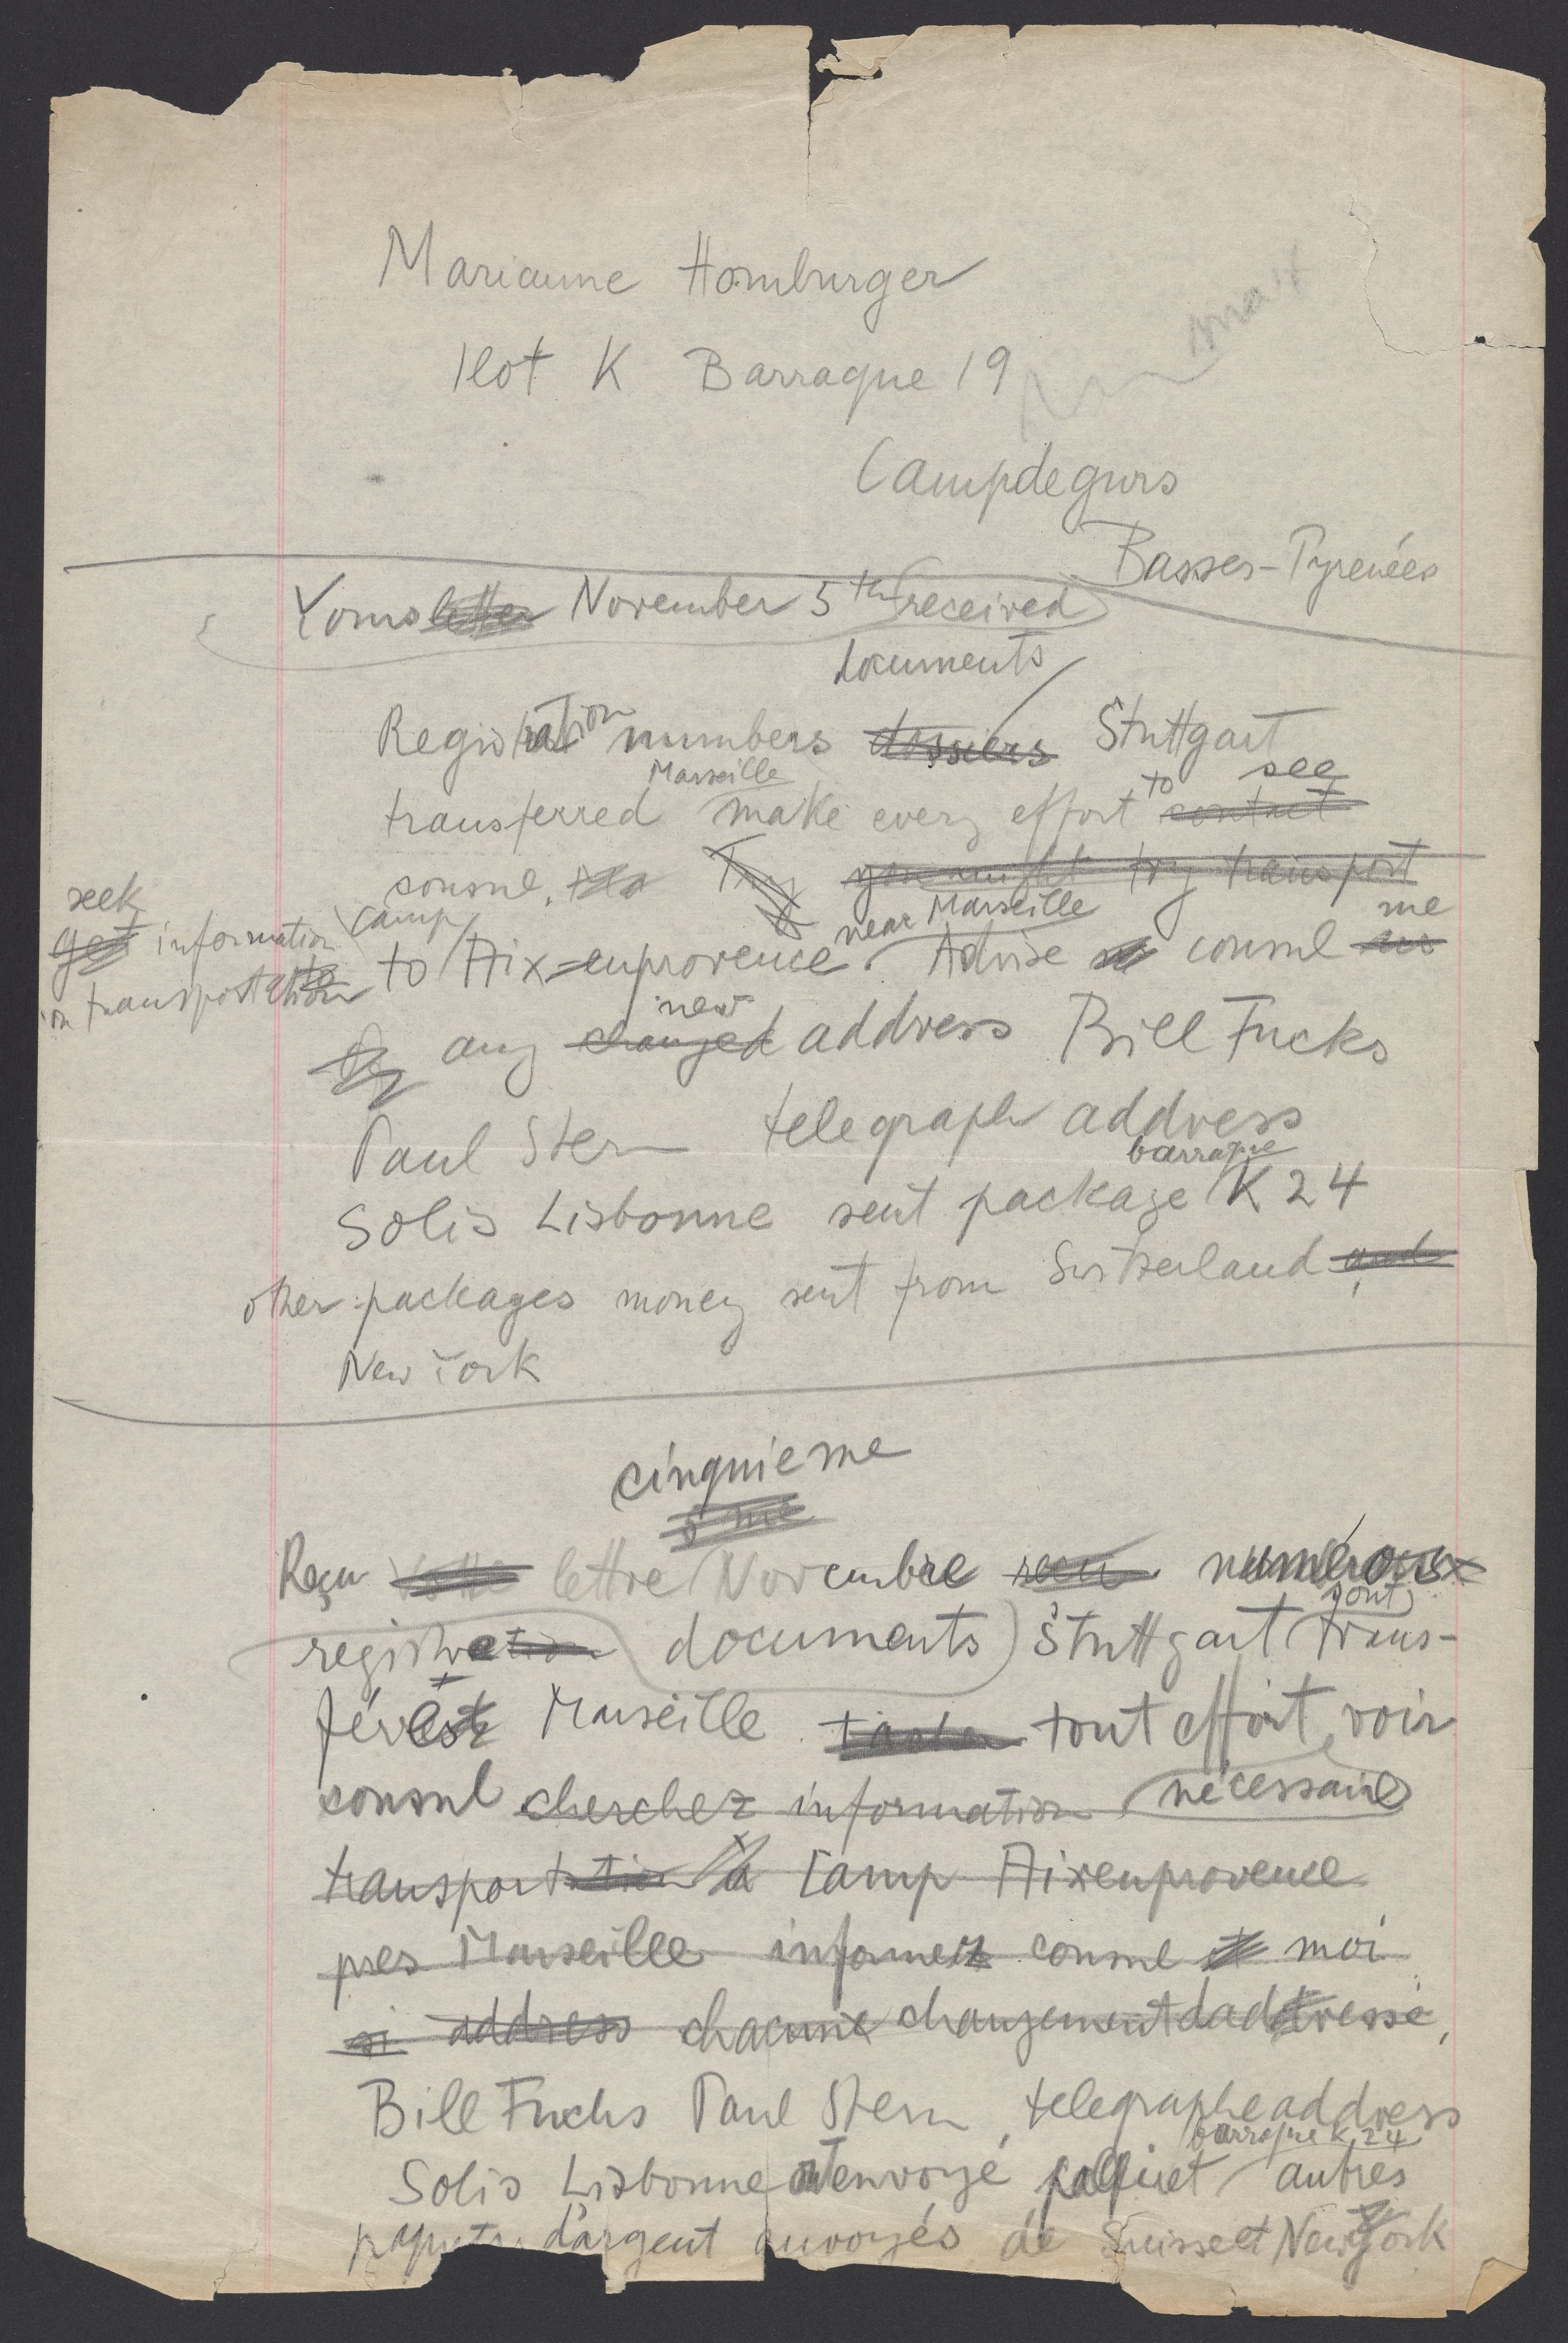 Marianne Homburger
Ilot K Barraque 19
Campdegurs
Basses-Pyrenées
Yours letter November 5th received
documents
Registration numbers dossiers Stuttgart
Marseille to see
transferred make every effort contact
consul, Try you might try transport
seek camp near Marseille me
get information to Aix-enprovence. Advise consul us
on transportation
new
any changed address Bill Fucks
Paul Stern telegraph address
barraque
Solis Lisbonne sent package K 24
other packages money sent from Switzerland and
New York
cinquieme
5 me
Reçu lettre Novembre recu numéros
sont
registration documents Stuttgart trans-
férés Marseille tout effort voir
consul cherchez information nécessaire
transportation à Camp Aixenprovence
pres Marseille informez consul et moi
si address chacune changementdaddresse,
Bill Fuchs Paul Stern, telegrapheaddress
barraque K 24
Solis Lisbonne ontenvoyé paquet autres
paquets d'argent envoyés de Suisse et New York